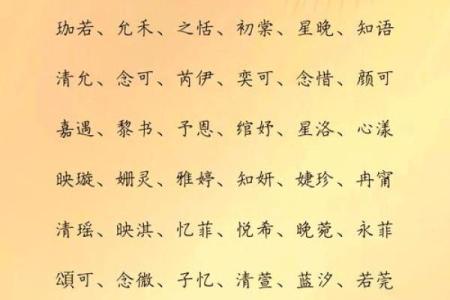 珈若、允禾、之恬、初棠、星晚、知语
清允、念可、芮伊、奕可、念惜、颜可
嘉遇、黎书、予恩、绾妤、星洛、心漾
映璇、姗灵、雅婷、知妍、婕珍、冉甯
清瑶、映淇、忆菲、悦希、晚菀、永菲
頌可、念微、子忆、清萱、蓝汐、若莞